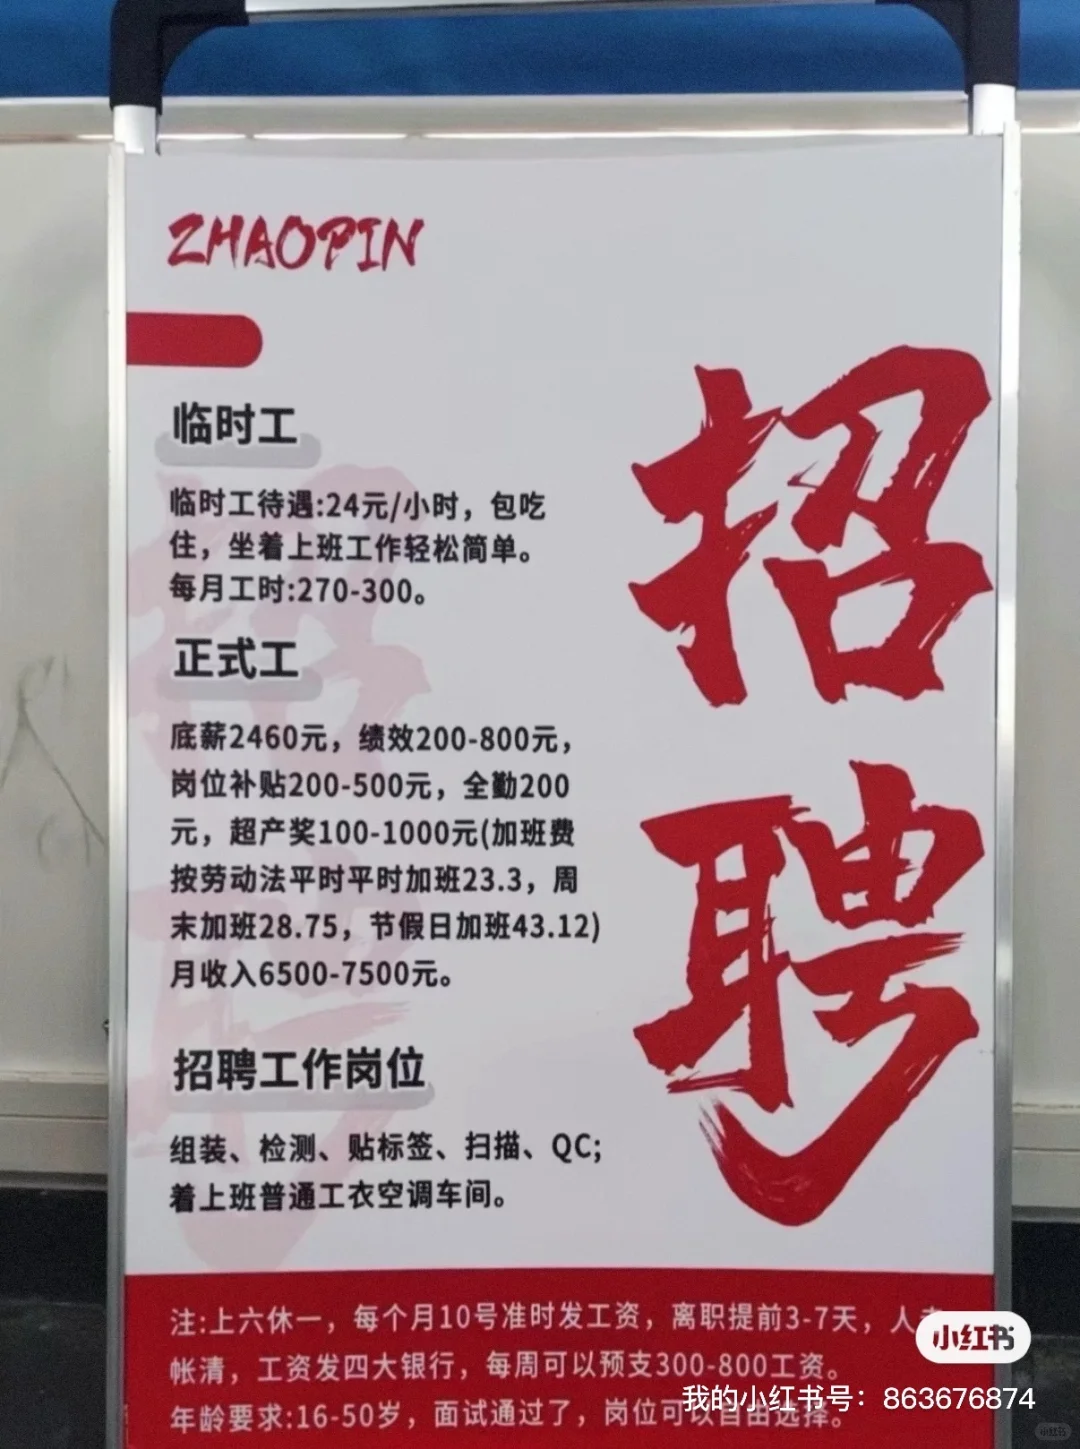 ZHAOPIN
招
聘
临时工
临时工待遇:24元/小时，包吃
住，坐着上班工作轻松简单。
每月工时:270-300。
正式工
底薪2460元，绩效200-800元，
岗位补贴200-500元，全勤200
元，超产奖100-1000元(加班费
按劳动法平时平时加班23.3，周
末加班28.75，节假日加班43.12)
月收入6500-7500元。
招聘工作岗位
组装、检测、贴标签、扫描、QC;
着上班普通工衣空调车间。
注:上六休一，每个月10号准时发工资，离职提前3-7天，人
帐清，工资发四大银行，每周可以预支300-800工资。
年龄要求:16-50岁，面试通过了，岗位可以自由选择。
小红书
我的小红书号：863676874
小红书